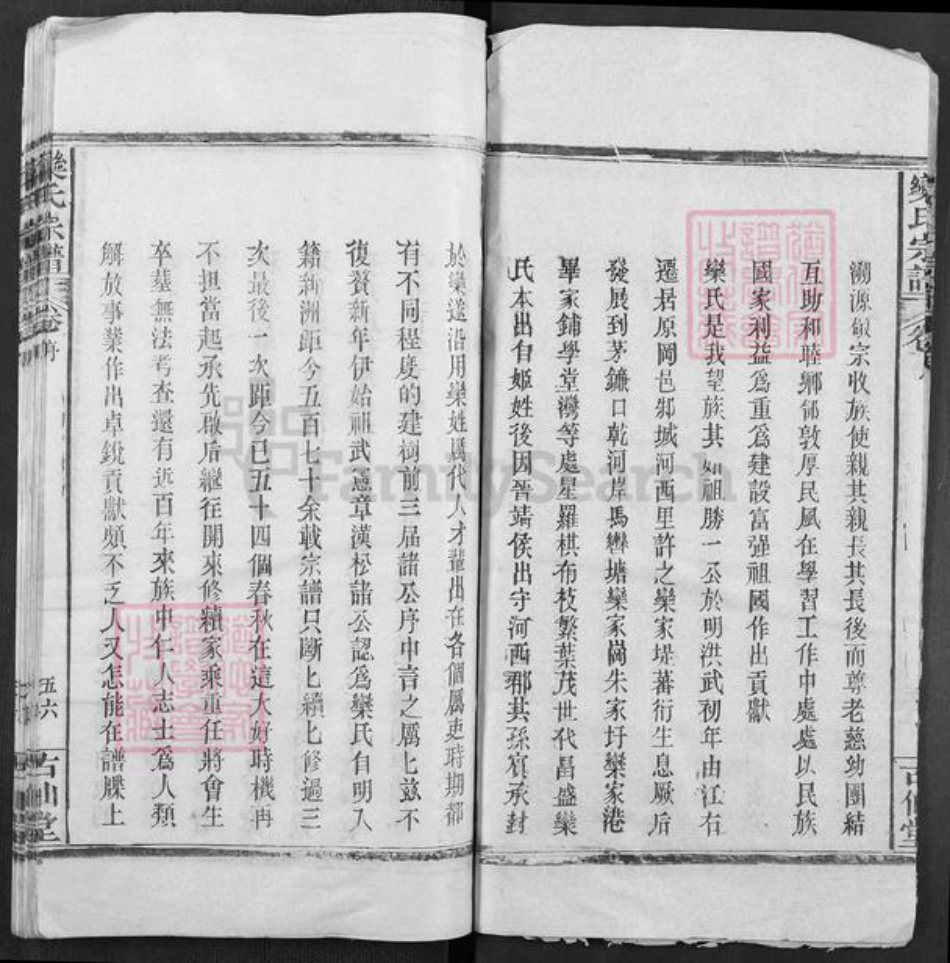 欒氏宗譜
溯源敬宗收族使親其親長其長後而尊老慈幼團結
互助和睦鄉鄰敦厚民風在學習工作中處處以民族
國家利益爲重爲建設富强祖國作出貢獻
欒氏是我望族其始祖勝一公於明洪武初年由江右
遷居原岡邑邾城河西里許之欒家堤蕃衍生息厥后
發展到茅鐮口乾河岸馬轡塘欒家崗朱家圩欒家港
畢家鋪學堂灣等處星羅棋布枝繁葉茂世代昌盛欒
氏本出自姬姓後因晉靖侯出守河西郡其孫賓承封
於欒遂沿用欒姓厲代人才輩出在各個厲吏時期都
有不同程度的建樹前三届諸公序中言之厲匕兹不
復贅新年伊始祖武憲章漢松諸公認爲欒氏自明入
籍新洲距今五百七十余載宗譜只斷匕續匕修過三
次最後一次距今已五十四個春秋在這大好時機再
不担當起承先啟后繼往開來修續家乘重任將會生
卒塟無法考查還有近百年來族中午人志士爲人類
解放事業作出卓銳貢獻頗不乏人又怎能在譜牒上
欒氏宗譜
五六
古仙堂
FamilySearch